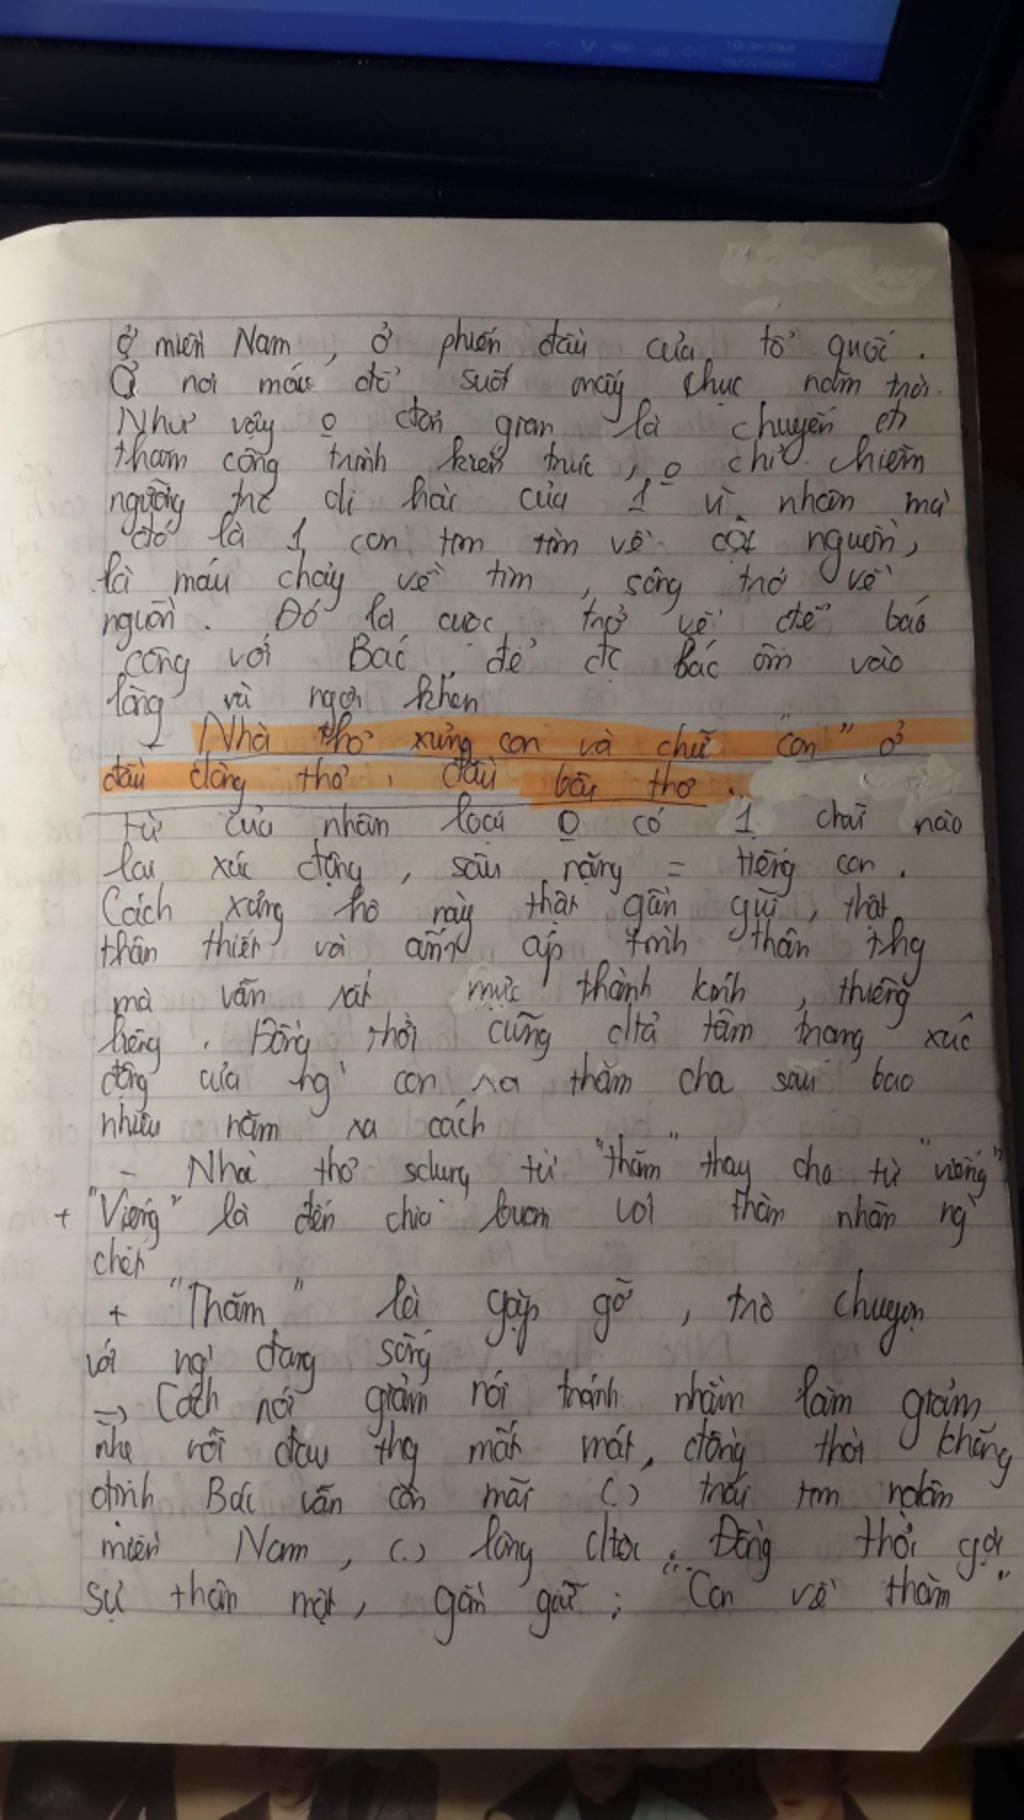 ở miền Nam, ở phiến đầu của tổ quốc.
Ở nơi máu đổ suốt mấy chục năm trời.
Như vậy o đơn giản là chuyến đi
tham công trình kiến trúc, o chỉ chiêm
ngưỡng trc di hài của 1 vĩ nhân mà
đó là 1 con tim tìm về cội nguồn,
là máu chảy về tim, sông trở về
nguồn. Đó là cuộc trở về để báo
công với Bác, để đc Bác ôm vào
lòng và ngợi khen
- Nhà thơ xưng con và chữ "con" ở
đầu dòng thơ, đầu bài thơ..
từ của nhân loại o có 1 chữ nào
lại xúc động, sâu nặng = tiếng con.
Cách xưng hô này thật gần gũi, thật
thân thiết và ấm áp tình thân thg
mà vẫn rất mực thành kính, thiêng
liêng. Đồng thời cũng dtả tâm trạng xúc
động của ng` con ra thăm cha sau bao
nhiêu năm xa cách
- Nhà thơ sdụng từ "thăm" thay cho từ "viếng"
+ "Viếng" là đến chia buồn với thân nhân ng`
chết
+ "Thăm" là gặp gỡ, trò chuyện
với ng` đang sống
=> Cách nói giảm nói tránh nhằm làm giảm
nhẹ nỗi đau thg mất mát, đồng thời khẳng
định Bác vẫn còn mãi (.) trái tim ndân
miền Nam, (.) lòng dtộc. Đồng thời gợi
sự thân mật, gần gũi: "Con về thăm"